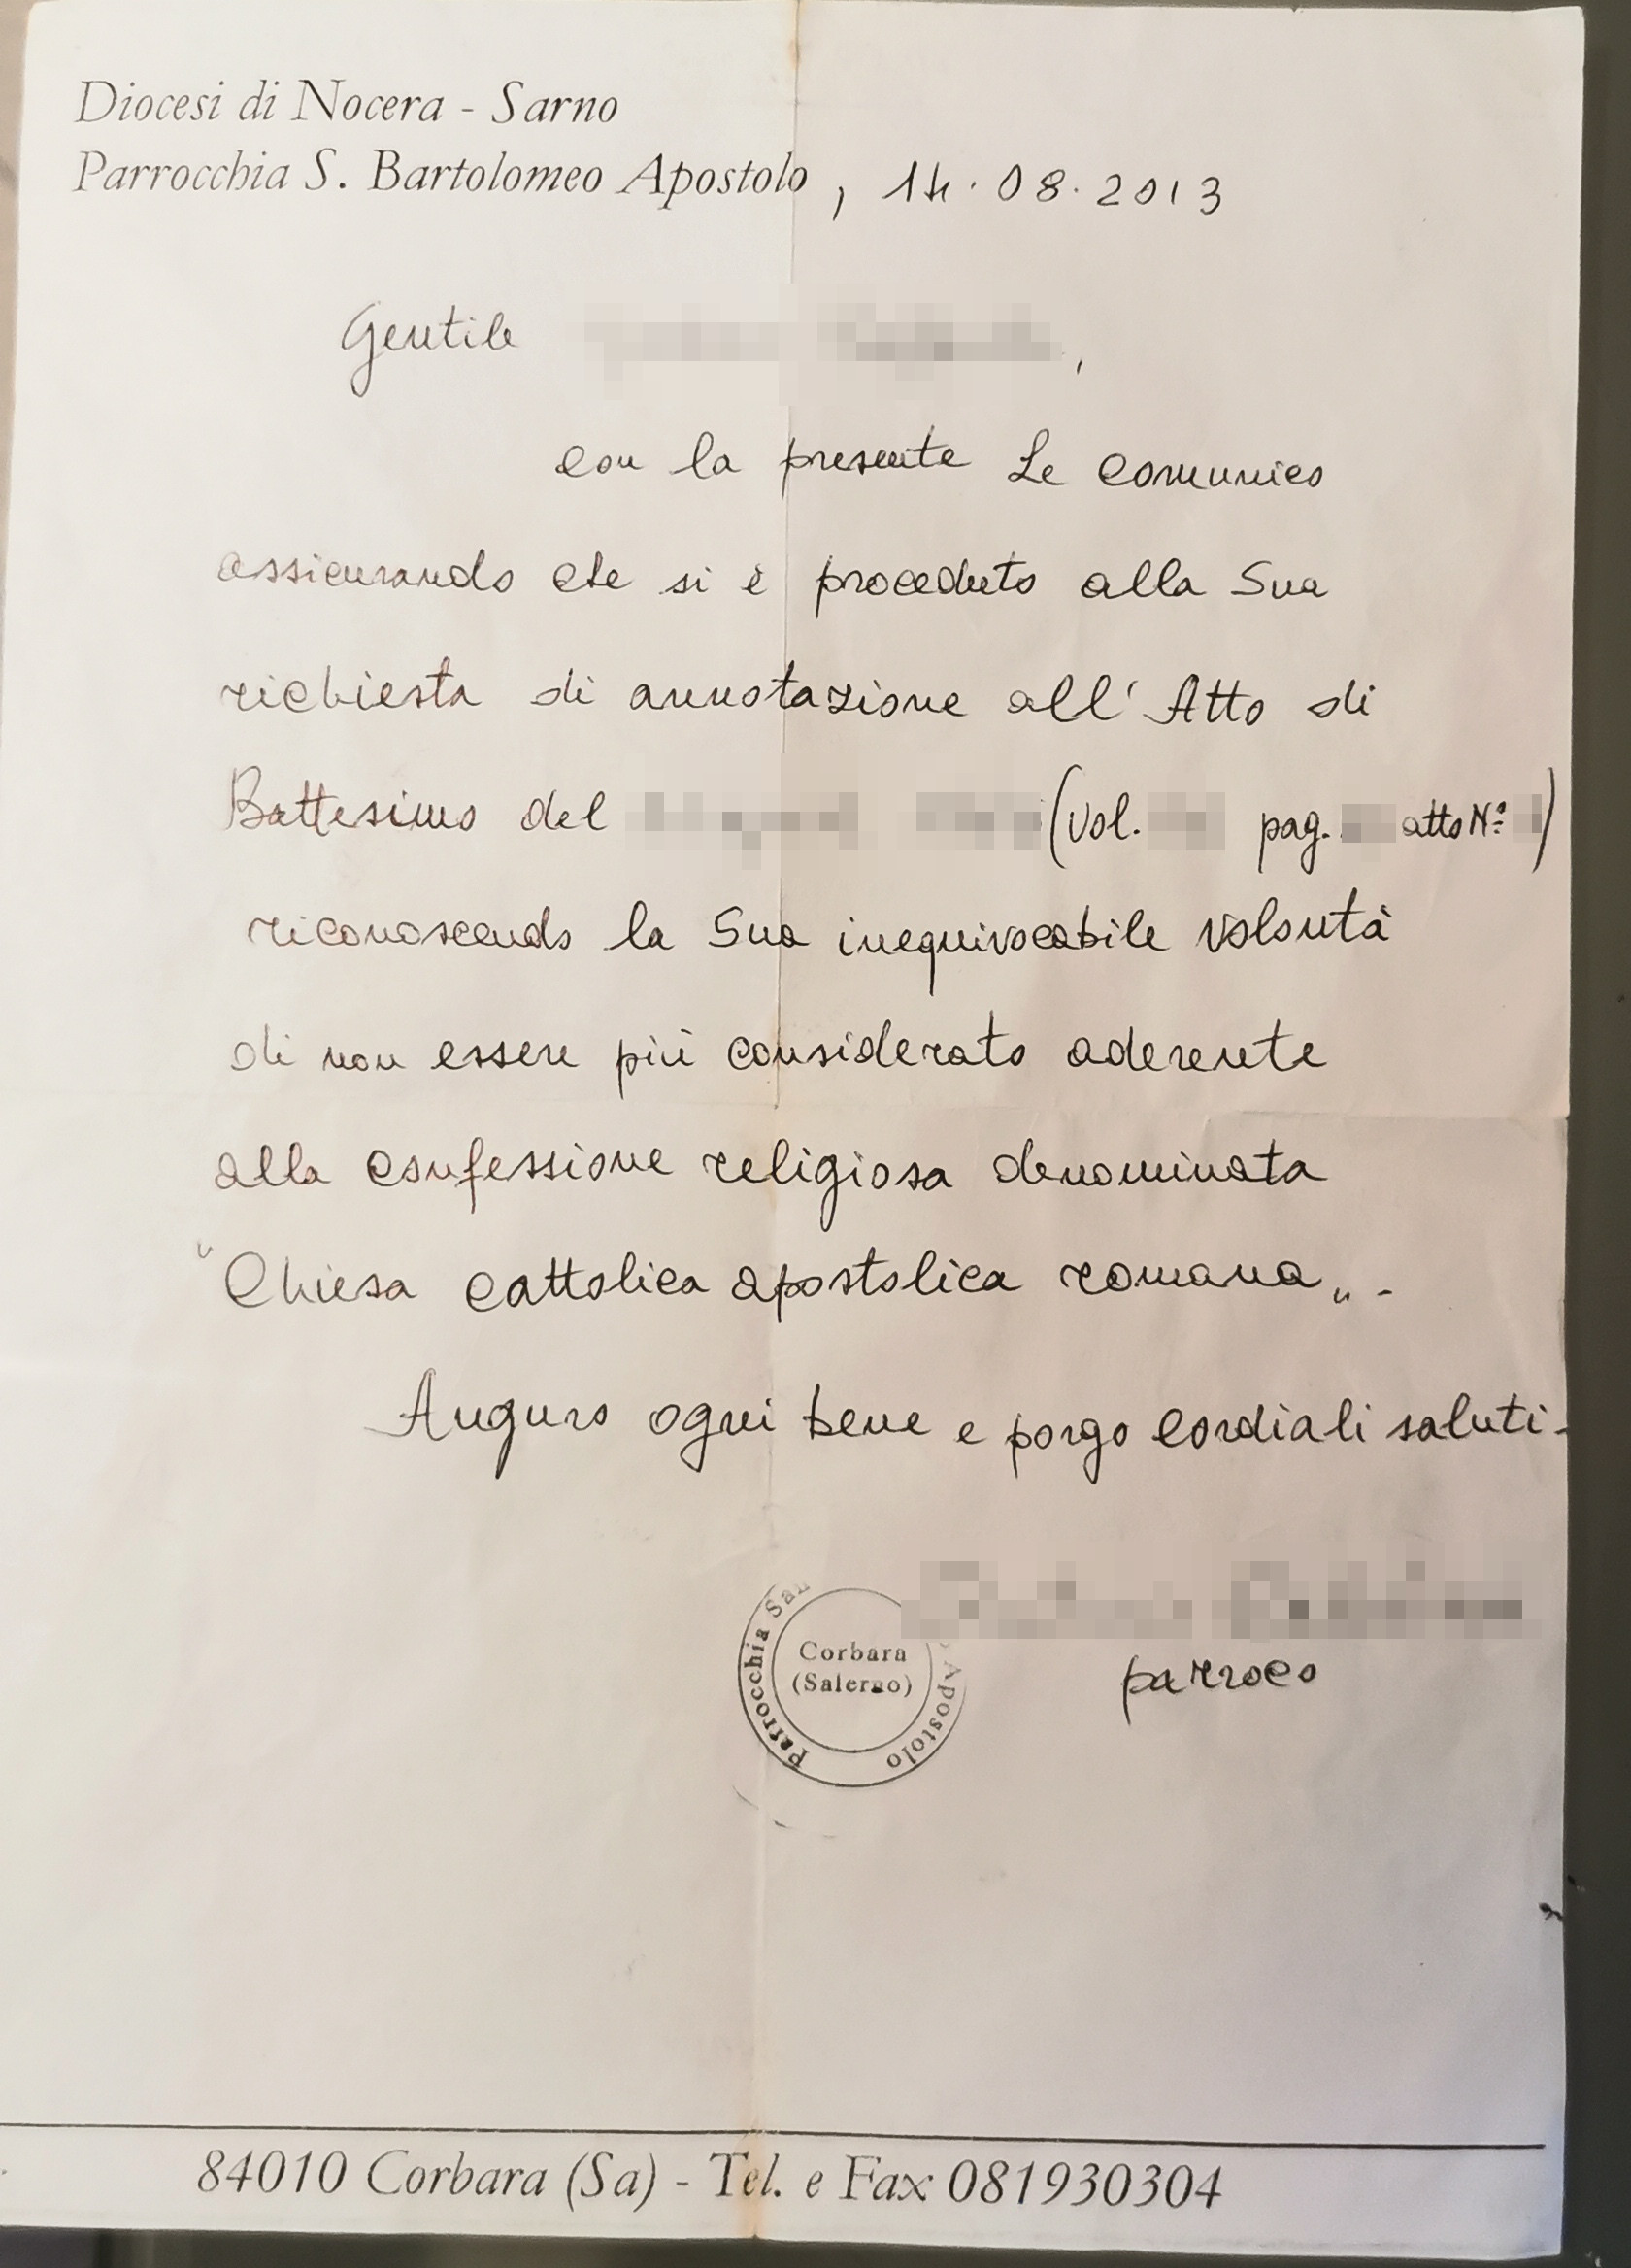 Diocesi di Nocera - Sarno
Parrocchia S. Bartolomeo Apostolo, 14.08.2013
Gentile ,
con la presente Le comunico
assicurando che si è proceduto alla Sua
richiesta di annotazione all'Atto di
Battesimo del (Vol. pag. atto N°)
riconoscendo la Sua inequivocabile volontà
di non essere più considerato aderente
alla confessione religiosa denominata
"Chiesa cattolica apostolica romana„.-
Auguro ogni bene e porgo cordiali saluti-
Parrocchia San Apostolo
Corbara
(Salerno)
parroco
84010 Corbara (Sa) - Tel. e Fax 081930304